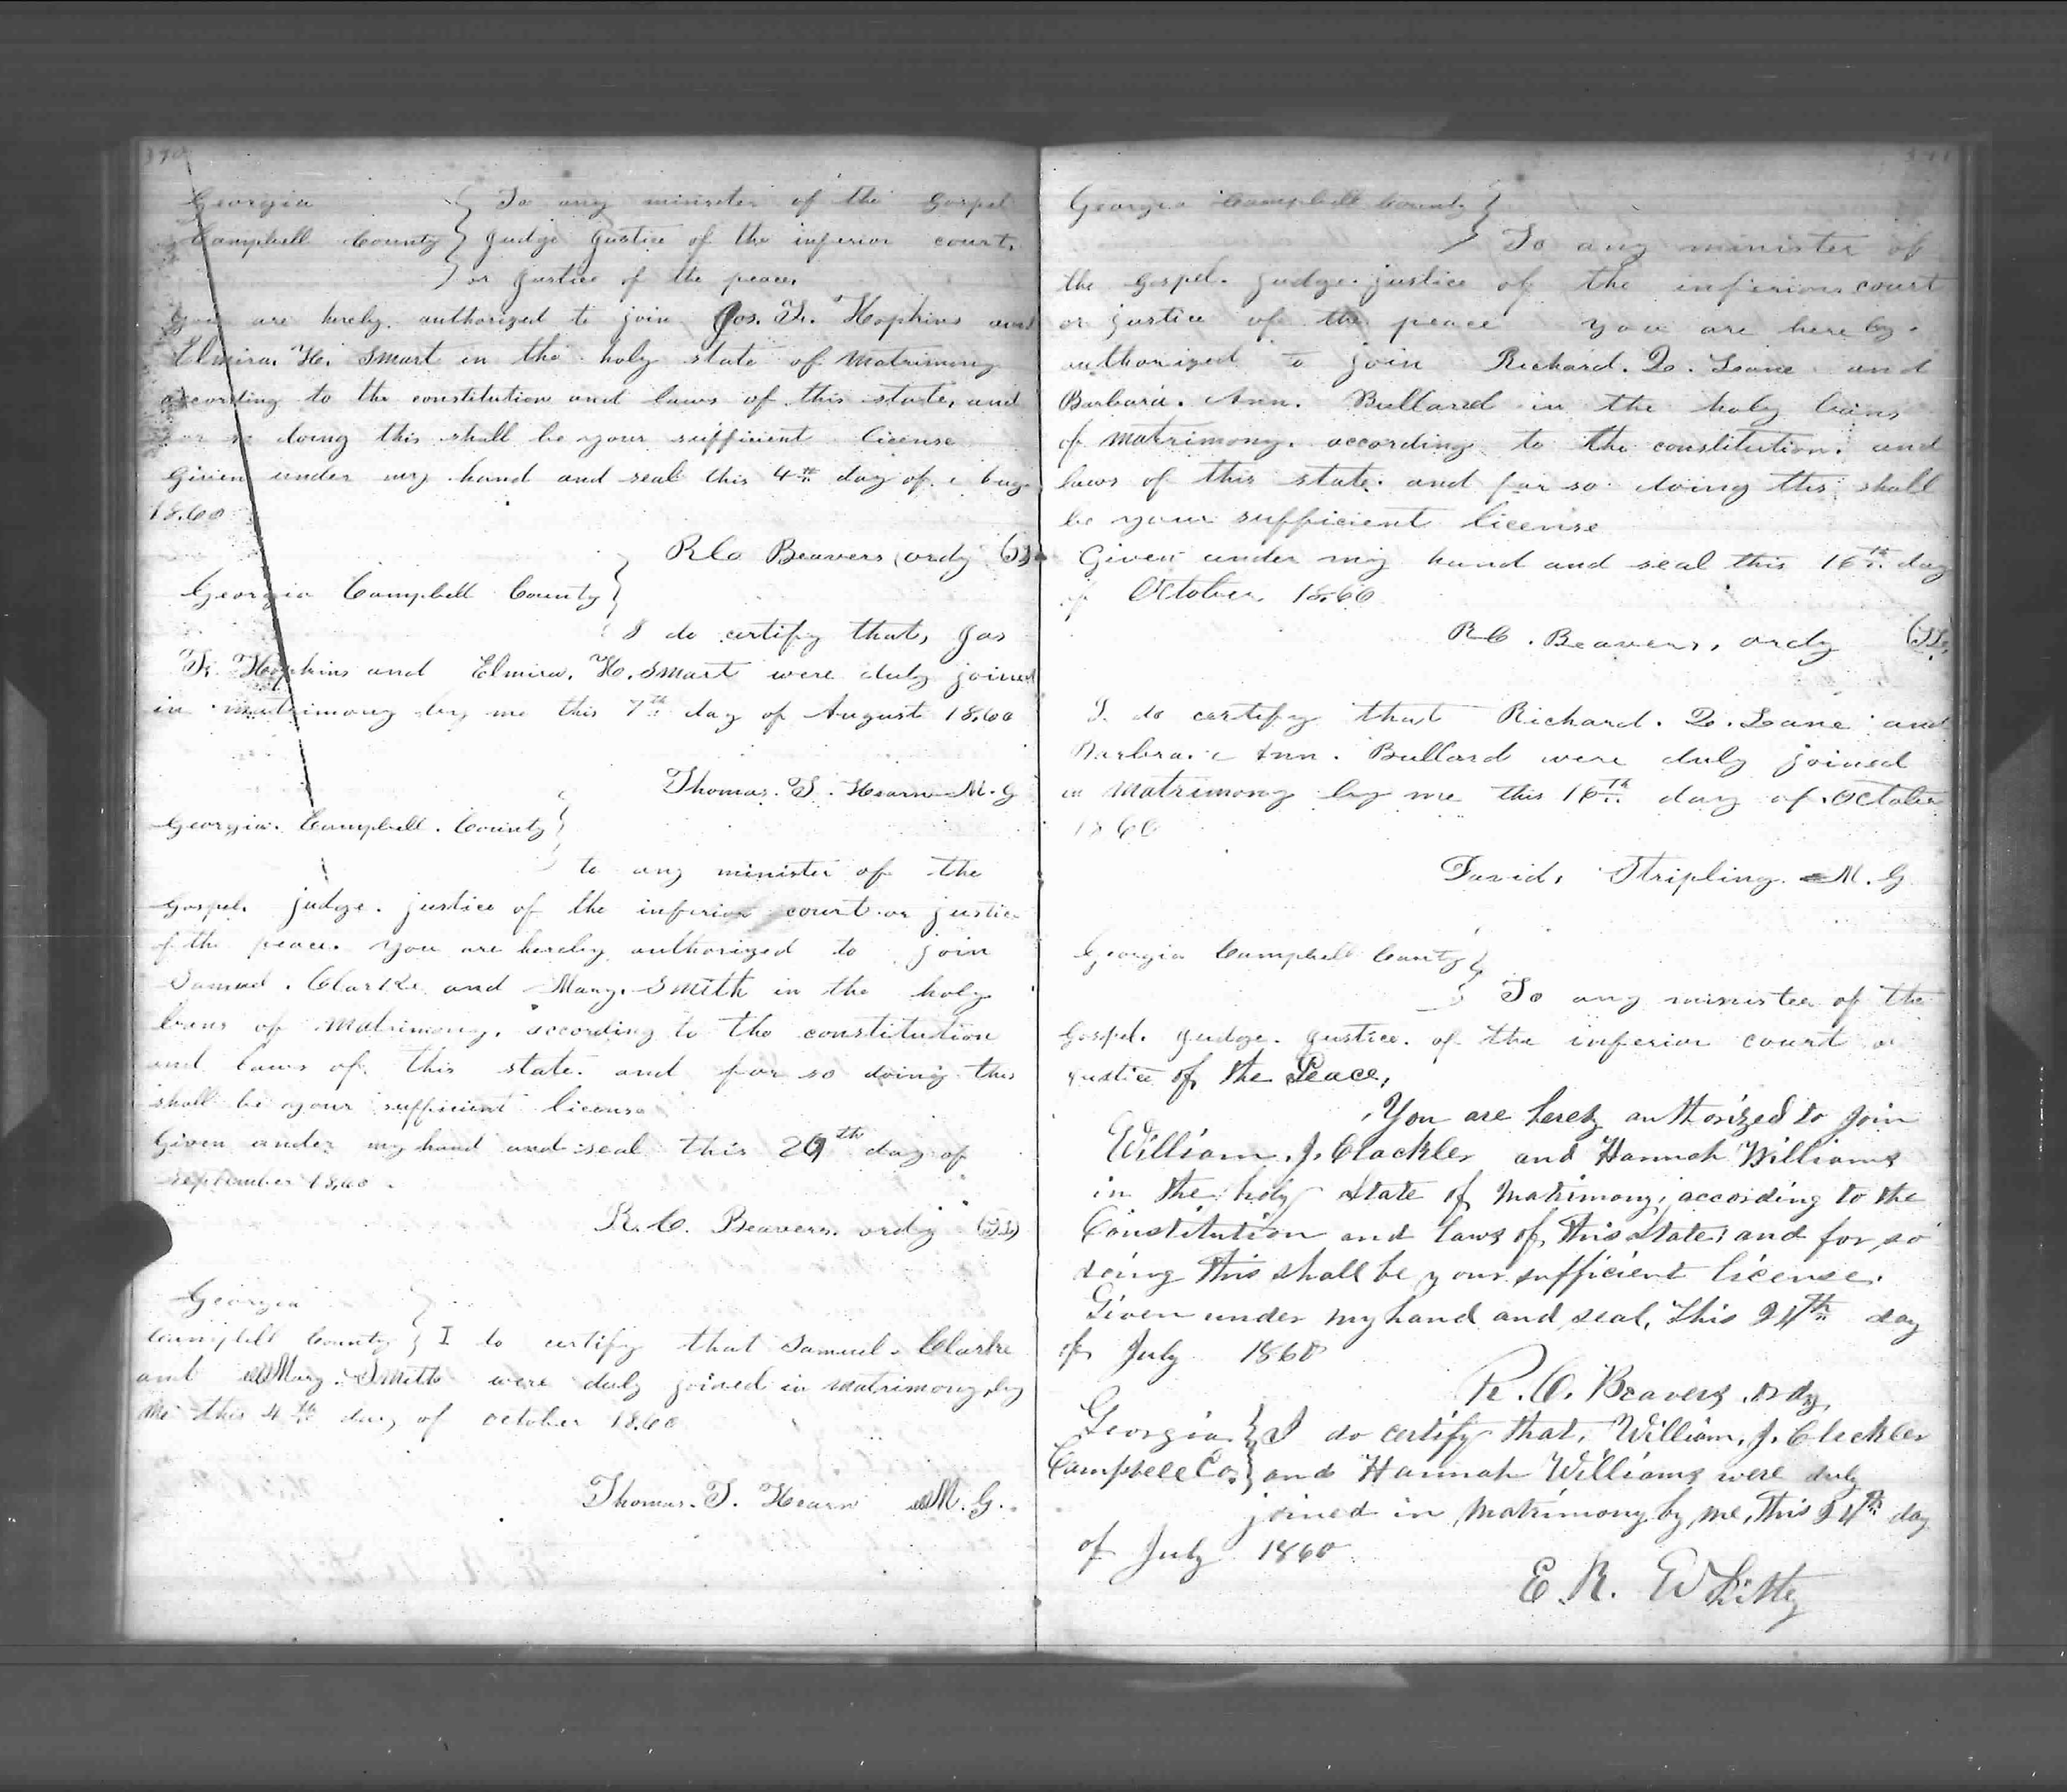 370
Georgia } To any minister of the Gospel
Campbell County } Judge Justice of the inferior court,
} or Justice of the peace,
You are hereby authorized to join Jos. F. Hopkins and
Elmira. H. Smart in the holy state of Matrimony
according to the constitution and laws of this state, and
for so doing this shall be your sufficient license
Given under my hand and seal this 4th day of Aug
1860
R C Beavers, ordy
Georgia Campbell County }
I do certify that, Jos
F. Hopkins and Elmira. H. Smart were duly joined
in matrimony by me this 7th day of August 1860
Thomas. S. Hearn M. G
Georgia. Campbell. County }
to any minister of the
Gospel. judge. justice of the inferior court or justice
of the peace. you are hereby authorized to join
Samuel. Clarke and Mary. Smith in the holy
bans of Matrimony. according to the constitution
and laws of this state. and for so doing this
shall be your sufficient license
Given under my hand and seal this 29th day of
September 1860.
R. C. Beavers. ordy
Georgia }
Campbell County } I do certify that Samuel. Clarke
and Mary. Smith were duly joined in matrimony by
me this 4th day of October 1860
Thomas. S. Hearn M. G.
371
Georgia Campbell County }
} To any minister of
the Gospel. judge. justice of the inferior court
or justice of the peace you are hereby.
authorized to join Richard. Q. Lane and
Barbara. Ann. Bullard in the holy bans
of Matrimony. according to the constitution. and
laws of this state. and for so doing this shall
be your sufficient license
Given under my hand and seal this 16th day
of October. 1860
R C. Beavers, ordy
I do certify that Richard. Q. Lane and
Barbra. Ann. Bullard were duly joined
in Matrimony by me this 16th day of October
1860
David, Stripling. M. G
Georgia Campbell County }
} To any minister of the
Gospel. Judge. Justice. of the inferior court or
justice of the Peace,
You are hereby authorized to join
William. J. Clackler and Hannah Williams
in the holy state of Matrimony, according to the
Constitution and laws of this State, and for so
doing this shall be your sufficient license.
Given under my hand and seal, this 24th day
of July 1860
R. C. Beavers, Ordy,
Georgia } I do certify that, William, J. Cleckler
Campbell Co. } and Hannah Williams were duly
joined in Matrimony by me, this 24th day
of July 1860
E. R. Whitty